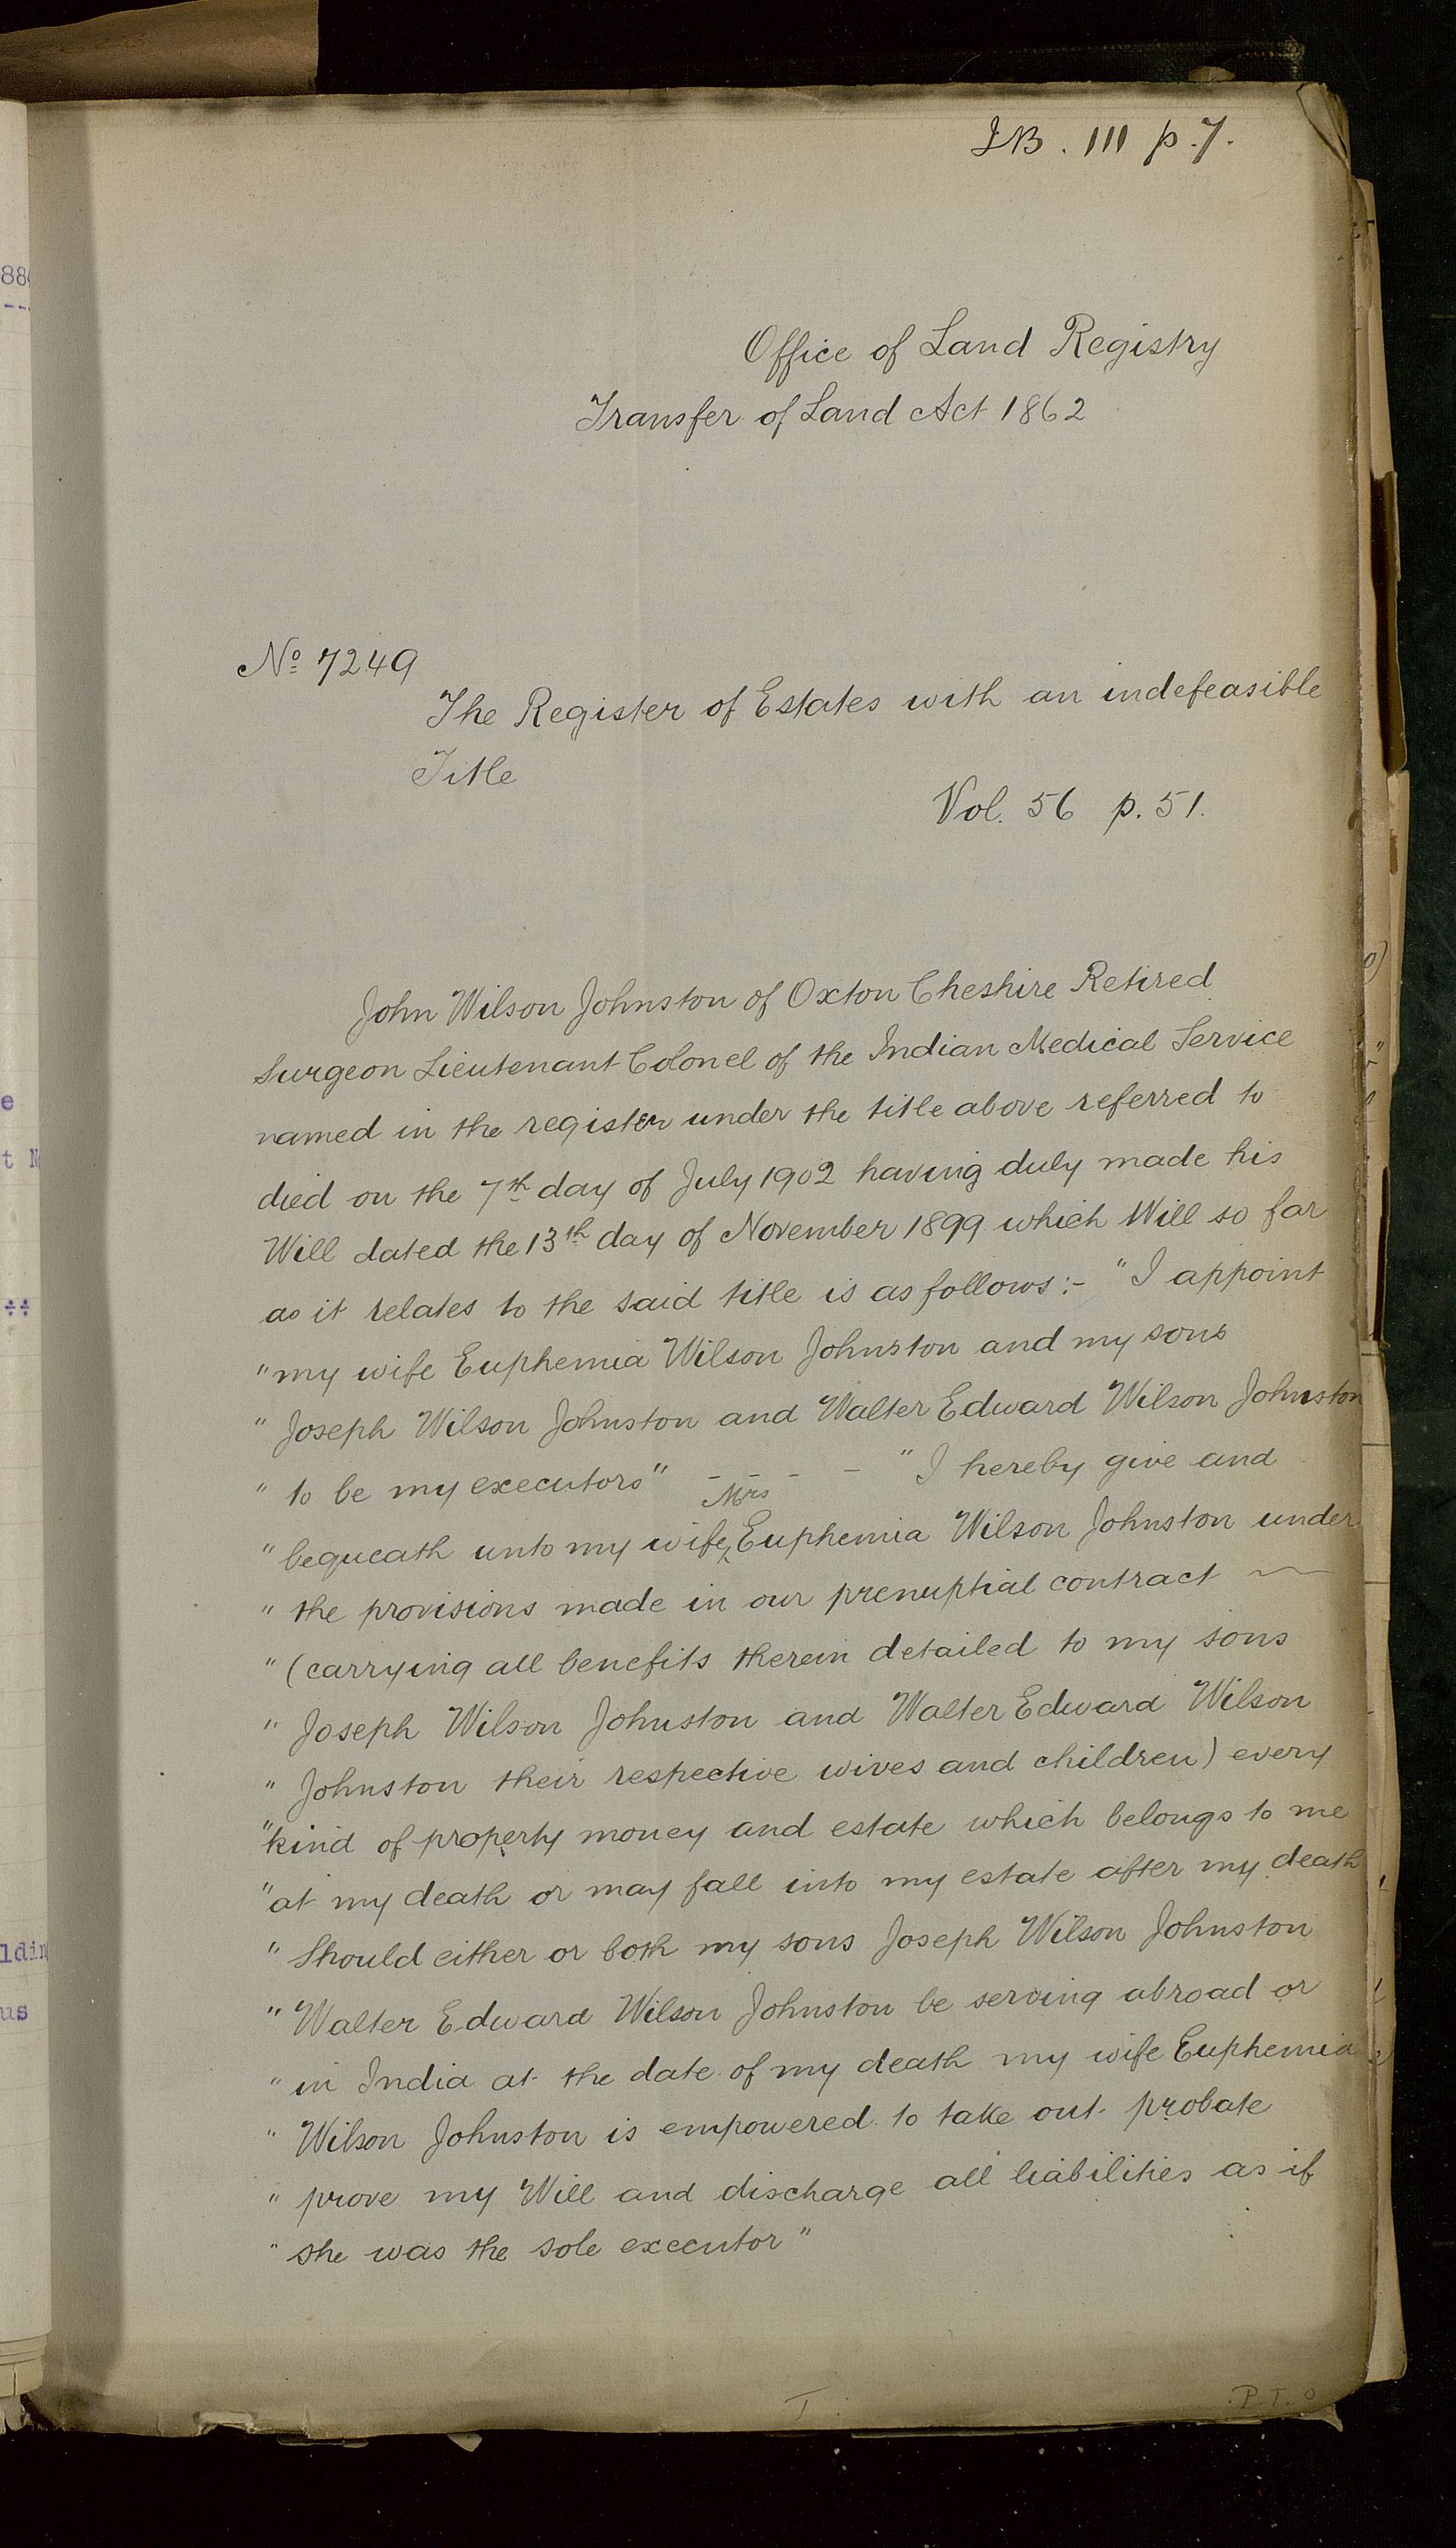 IB. III p. 7.
Office of Land Registry
Transfer of Land Act 1862
No 7249
The Register of Estates with an indefeasible
Title
Vol. 56 p. 51.
John Wilson Johnston of Oxton Cheshire Retired
Surgeon Lieutenant Colonel of the Indian Medical Service
named in the register under the title above referred to
died on the 7th day of July 1902 having duly made his
Will dated the 13th day of November 1899 which Will so far
as it relates to the said title is as follows:- "I appoint
"my wife Euphemia Wilson Johnston and my sons
" Joseph Wilson Johnston and Walter Edward Wilson Johnston
" to be my executors" - - - - "I hereby give and
" bequeath unto my wife, Mrs Euphemia Wilson Johnston under
" the provisions made in our prenuptial contract
" (carrying all benefits therein detailed to my sons
" Joseph Wilson Johnston and Walter Edward Wilson
" Johnston their respective wives and children) every
"kind of property money and estate which belongs to me
"at my death or may fall into my estate after my death
" Should either or both my sons Joseph Wilson Johnston
" Walter Edward Wilson Johnston be serving abroad or
" in India at the date of my death my wife Euphemia
" Wilson Johnston is empowered to take out probate
" prove my Will and discharge all liabilities as if
" she was the sole executor"
P.T.O